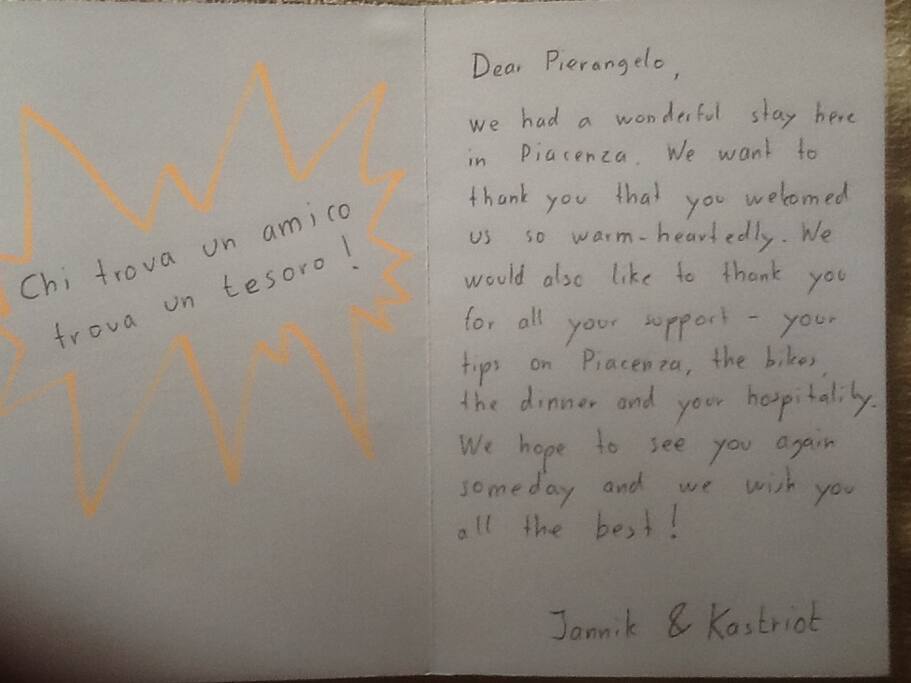 Chi trova un amico
trova un tesoro!
Dear Pierangelo,
we had a wonderful stay here
in Piacenza. We want to
thank you that you welcomed
us so warm-heartedly. We
would also like to thank you
for all your support - your
tips on Piacenza, the bikes,
the dinner and your hospitality.
We hope to see you again
someday and we wish you
all the best!
Jannik & Kastriot